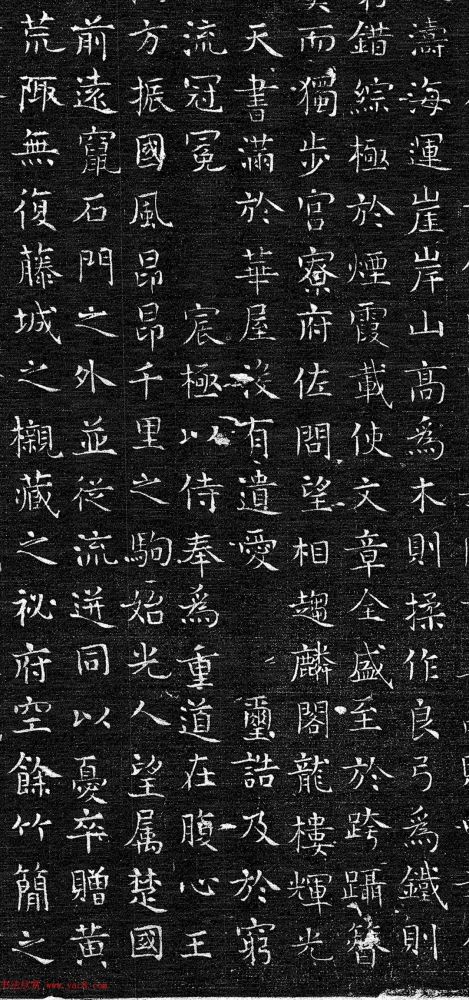 濤海運崖岸山高為木則操作良弓為鐵則
錯綜極於煙霞載使文章全盛至於跨躡簪
而獨步官寮府佐問望相趨麟閣龍樓輝光
天書滿於華屋沒有遺愛 璽誥及於窮
流冠冕 宸極以侍奉為重道在腹心王
方振國風昂昂千里之駒始光人望属楚國
前遠竄石門之外並從流迸同以憂卒贈黃
荒陬無復藤城之櫬藏之祕府空餘竹簡之
www.yac8.com